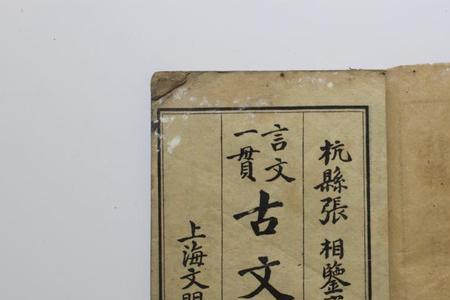 杭縣張相鑒
言文
一貫
古文
上海文